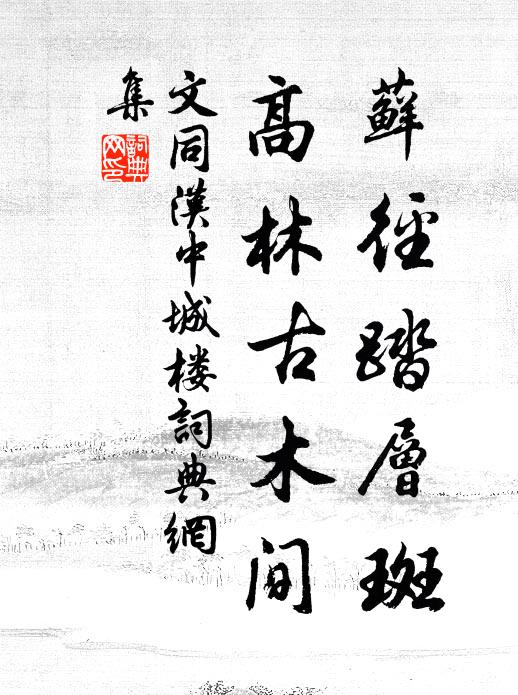 蘚徑踏層斑
高林古木間
文同漢中城楼詞典網
集
詞典網印